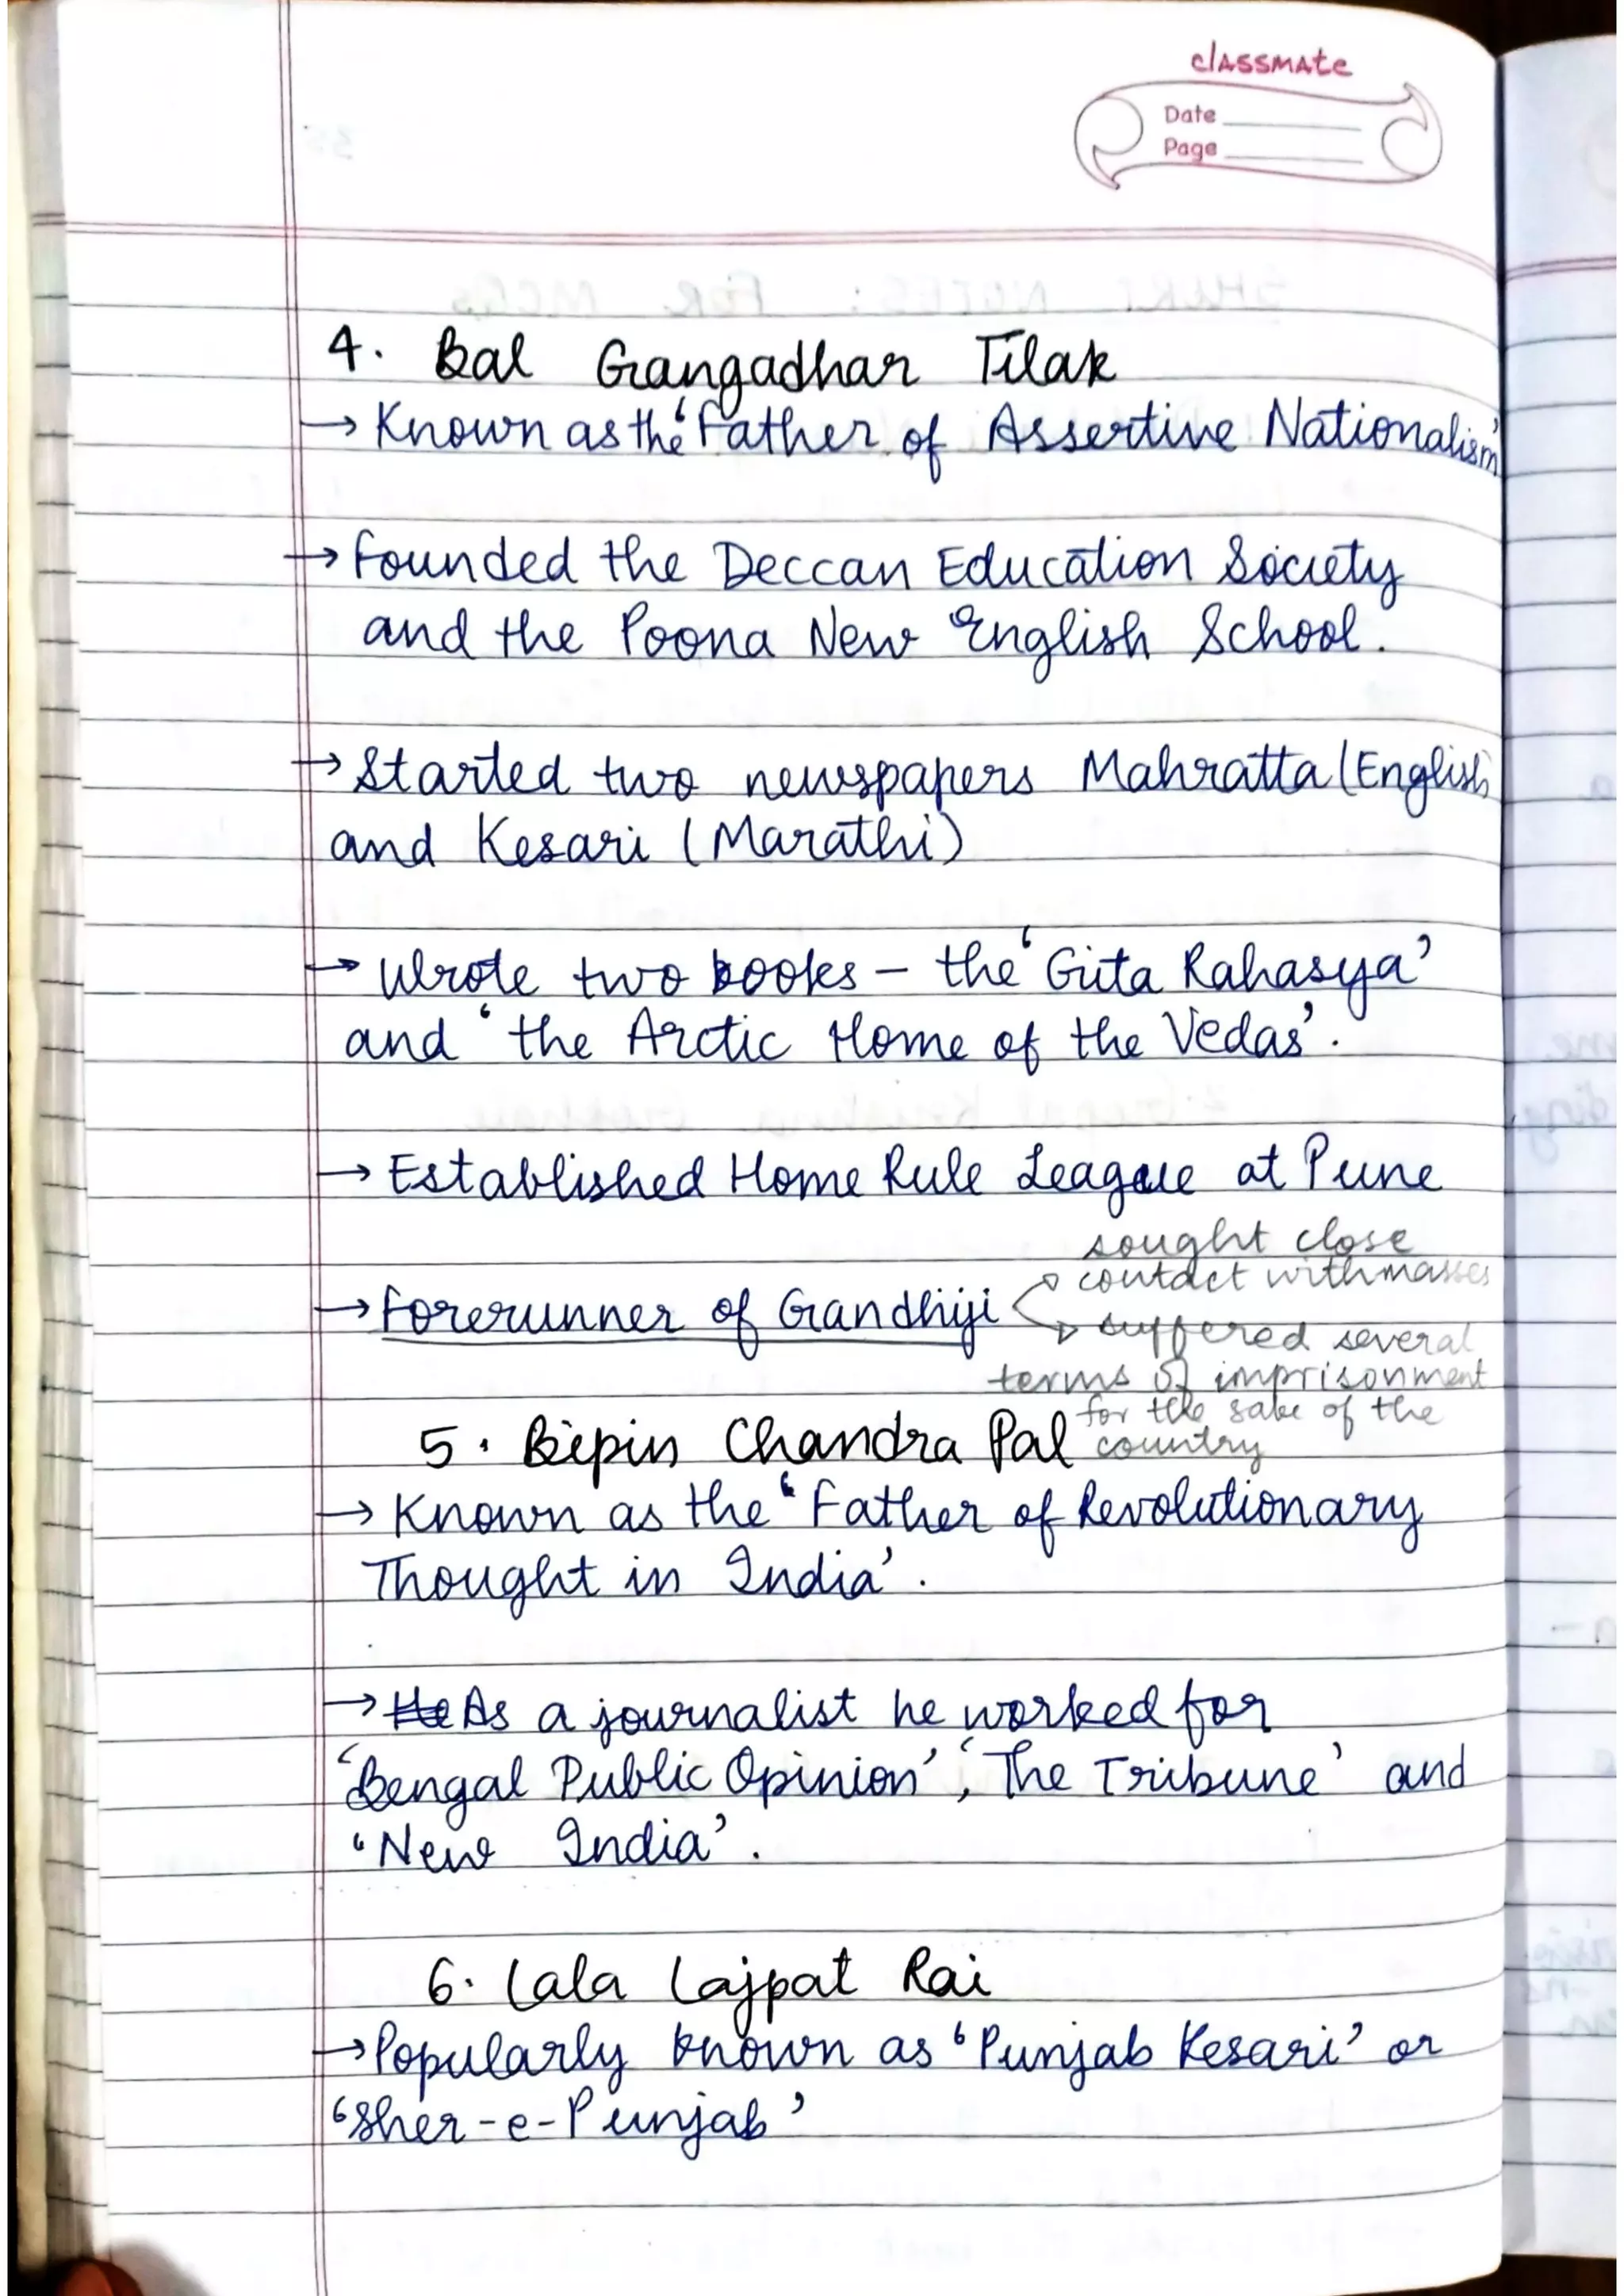 classmate
Date
Page
4. Bal Gangadhar Tilak
→ Known as the 'Father of Assertive Nationalism'
→ Founded the Deccan Education Society
and the Poona New English School.
→ Started two newspapers Mahratta (English)
and Kesari (Marathi)
→ Wrote two books – the 'Gita Rahasya'
and 'the Arctic Home of the Vedas'.
→ Established Home Rule League at Pune
→ Forerunner of Gandhiji
sought close
contact with masses
suffered several
terms of imprisonment
for the sake of the
country
5. Bipin Chandra Pal
→ Known as the 'Father of Revolutionary
Thought in India'.
→ He As a journalist he worked for
'Bengal Public Opinion', 'The Tribune' and
'New India'.
6. Lala Lajpat Rai
→ Popularly known as 'Punjab Kesari' or
'Sher-e-Punjab'